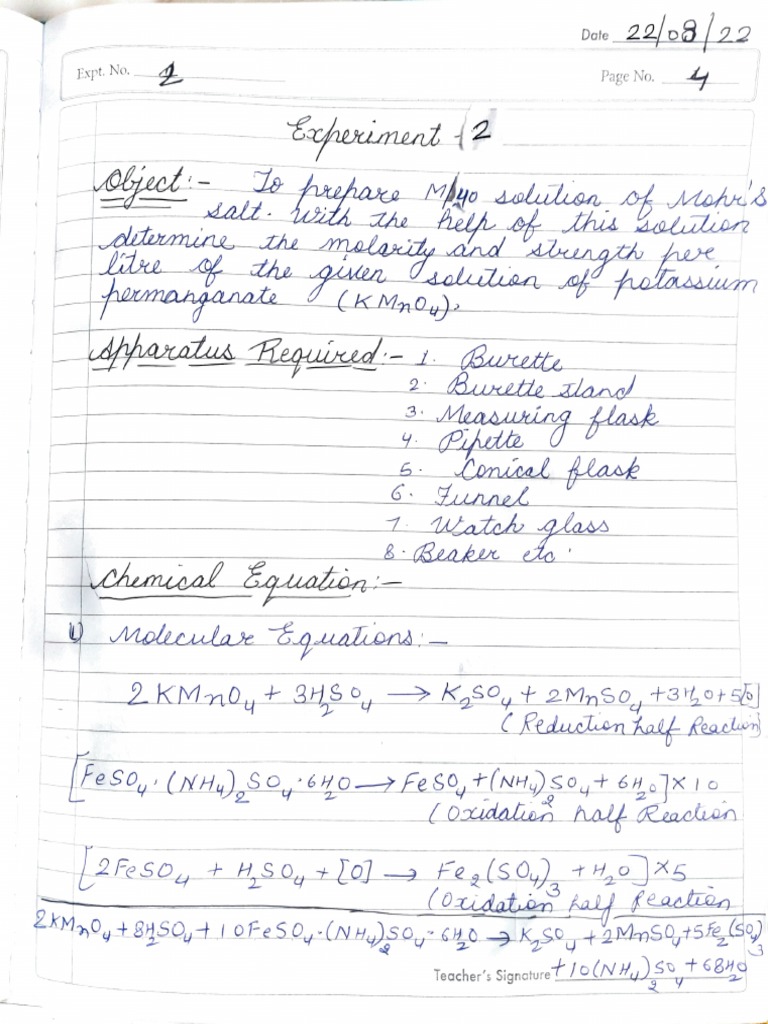 Date 22/08/22
Expt. No. 2
Page No. 4
Experiment - 2
Object:- To prepare M/40 solution of Mohr's
salt. With the help of this solution
determine the molarity and strength per
litre of the given solution of potassium
permanganate (KMnO₄).
Apparatus Required:- 1. Burette
2. Burette stand
3. Measuring flask
4. Pipette
5. Conical flask
6. Funnel
7. Watch glass
8. Beaker etc.
Chemical Equation:-
1) Molecular Equations:-
2KMnO₄ + 3H₂SO₄ → K₂SO₄ + 2MnSO₄ + 3H₂O + 5[O]
(Reduction half Reaction)
[FeSO₄·(NH₄)₂SO₄·6H₂O → FeSO₄ + (NH₄)₂SO₄ + 6H₂O] × 10
(Oxidation half Reaction
[2FeSO₄ + H₂SO₄ + [O] → Fe₂(SO₄)₃ + H₂O] × 5
(Oxidation half Reaction
2KMnO₄ + 8H₂SO₄ + 10FeSO₄·(NH₄)₂SO₄·6H₂O → K₂SO₄ + 2MnSO₄ + 5Fe₂(SO₄)₃
Teacher's Signature + 10(NH₄)₂SO₄ + 68H₂O